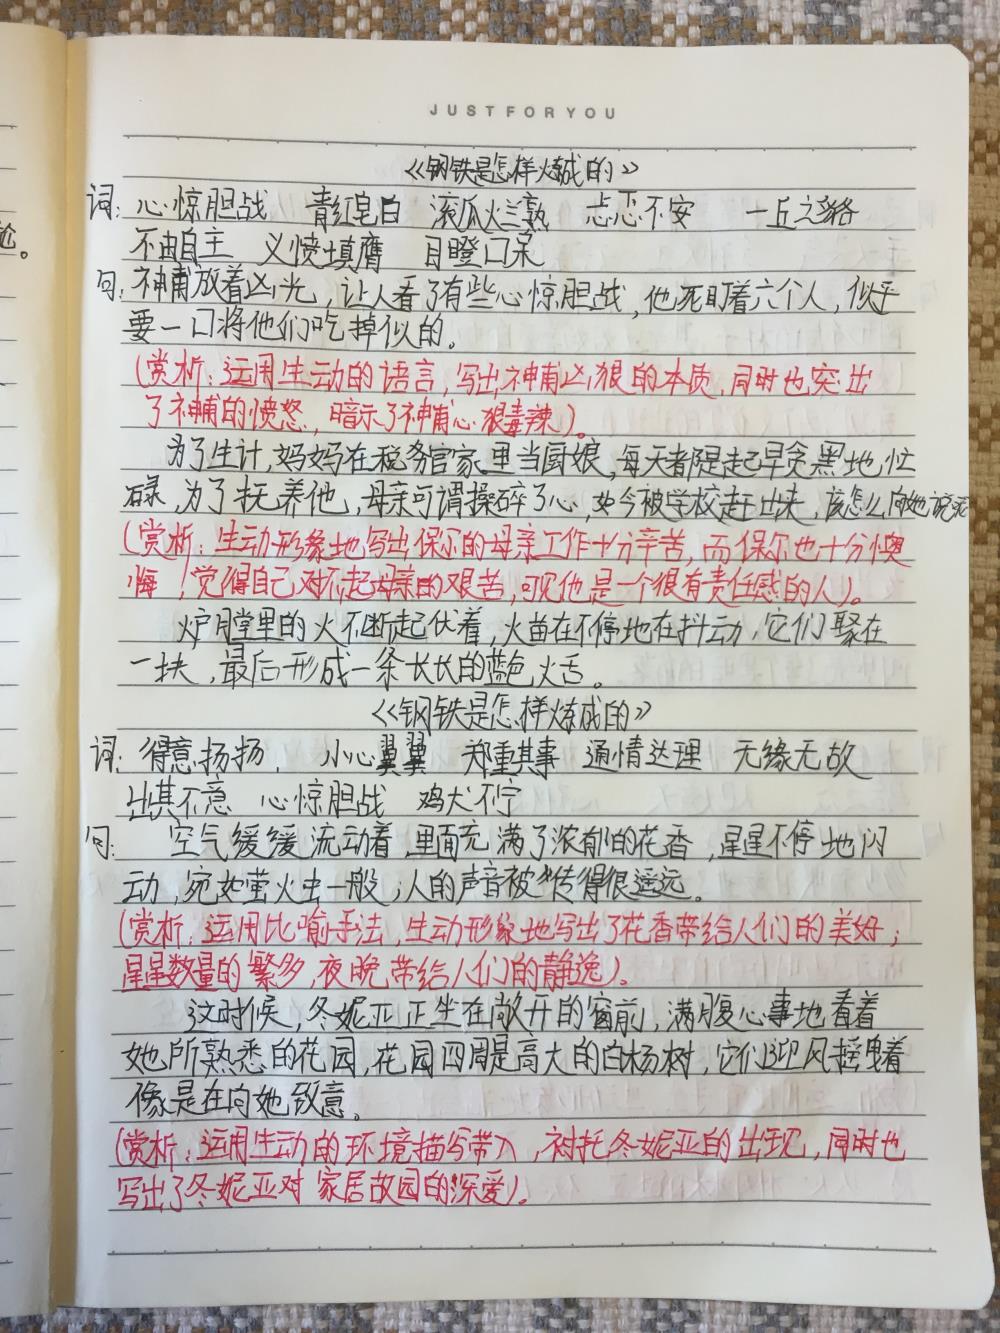 JUST FOR YOU
《钢铁是怎样炼成的》
词：心惊胆战 青红皂白 滚瓜烂熟 忐忑不安 一丘之貉
不由自主 义愤填膺 目瞪口呆
句：神甫放着凶光，让人看了有些心惊胆战，他死盯着六个人，似乎
要一口将他们吃掉似的。
（赏析：运用生动的语言，写出神甫凶狠的本质，同时也突出
了神甫的愤怒，暗示了神甫心狠毒辣）。
为了生计，妈妈在税务官家里当厨娘，每天都是起早贪黑地忙
碌，为了抚养他，母亲可谓操碎了心，如今被学校赶出来，该怎么向她说呢
（赏析：生动形象地写出保尔的母亲工作十分辛苦，而保尔也十分懊
悔，觉得自己对不起母亲的艰苦，可见他是一个很有责任感的人）。
炉膛里的火不断起伏着，火苗在不停地在抖动，它们聚在
一块，最后形成一条长长的蓝色火舌。
《钢铁是怎样炼成的》
词：得意扬扬． 小心翼翼 郑重其事 通情达理 无缘无故
出其不意 心惊胆战 鸡犬不宁
句： 空气缓缓流动着，里面充满了浓郁的花香，星星不停地闪
动，宛如萤火虫一般；人的声音被传得很遥远。
（赏析：运用比喻手法，生动形象地写出了花香带给人们的美好；
星星数量的繁多，夜晚带给人们的静逸）。
这时候，冬妮亚正坐在敞开的窗前，满腹心事地看着
她所熟悉的花园，花园四周是高大的白杨树，它们迎风摇曳着
像是在向她致意。
（赏析：运用生动的环境描写带入，衬托冬妮亚的出现，同时也
写出了冬妮亚对家居故园的深爱）。